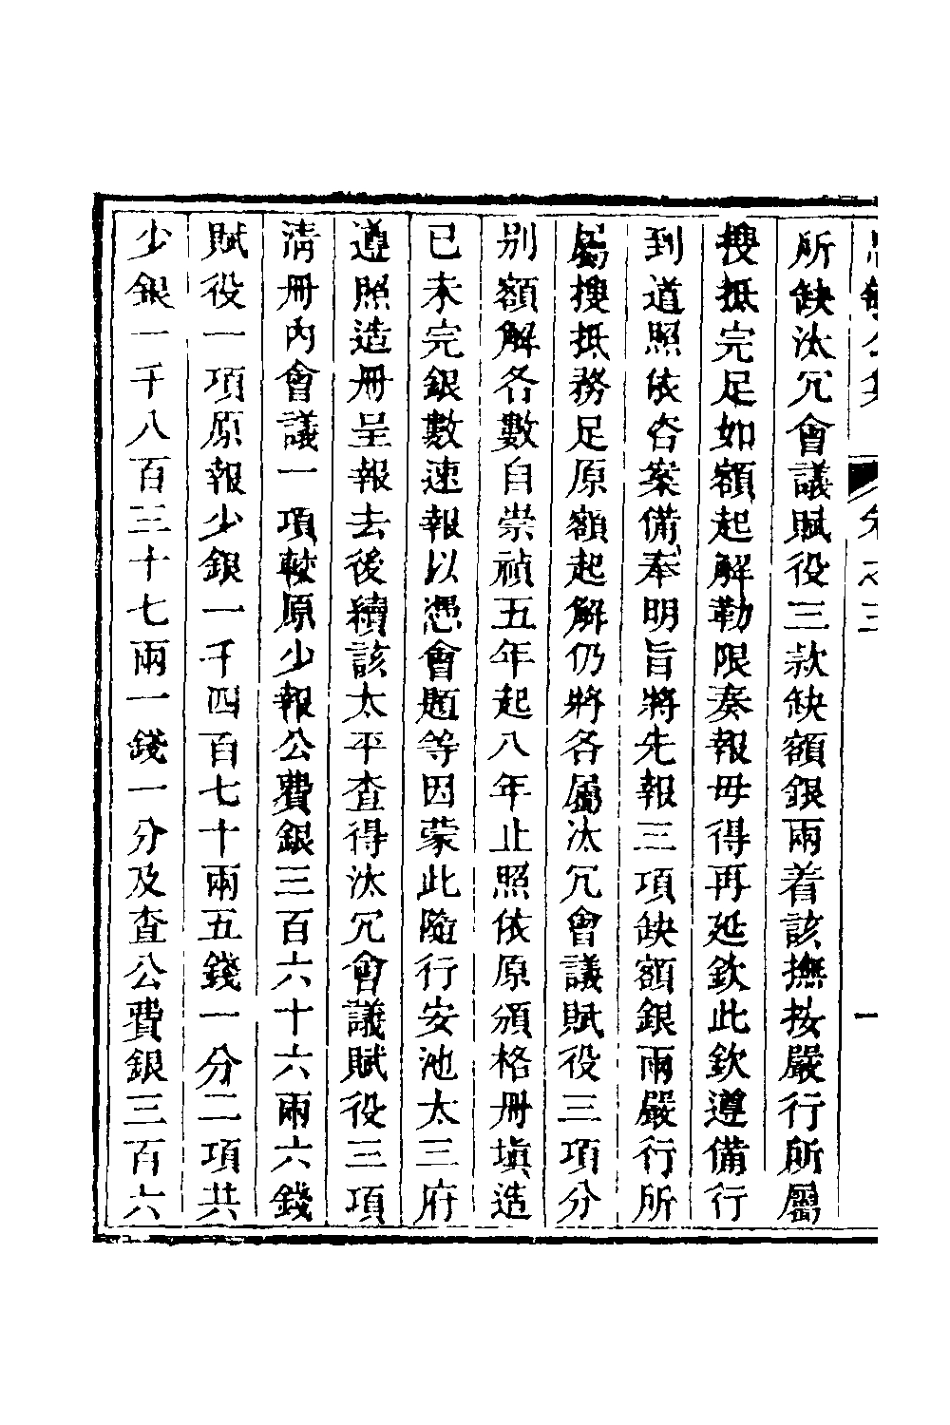 所缺汰冗會議賦役三款缺額銀兩着該撫按嚴行所屬
搜抵完足如額起解勒限奏報毋得再延欽此欽遵備行
到道照依咨案備奉明旨將先報三項缺額銀兩嚴行所
屬搜抵務足原額起解仍將各屬汰冗會議賦役三項分
别額解各數自崇禎五年起八年止照依原頒格冊塡造
已未完銀數速報以憑會題等因蒙此隨行安池太三府
遵照造冊呈報去後續該太平查得汰冗會議賦役三項
淸冊內會議一項較原少報公費銀三百六十六兩六錢
賦役一項原報少銀一千四百七十兩五錢一分二項共
少銀一千八百三十七兩一錢一分及查公費銀三百六